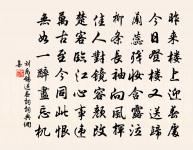 昨來樓上迎春處
今日登樓又送歸
蘭蕊殘妝含露泣
柳條長袖向風揮
佳人對鏡容顏改
楚客臨江心事違
萬古至今同此恨
無如一醉盡忘機
劉禹錫送春詞詞典網